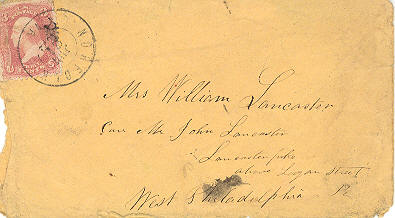 Mrs William Lancaster
Care Mr John Lancaster
Lancaster pike
above Logan Street
West Philadelphia Pa